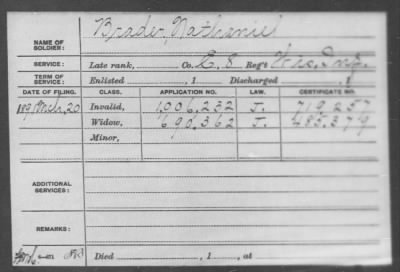 NAME OF SOLDIER: Brader, Nathaniel
SERVICE: Late rank, Co. E. 8 Reg't Wis. Inf.
TERM OF SERVICE: Enlisted , 1 Discharged , 1
DATE OF FILING. CLASS. APPLICATION NO. LAW. CERTIFICATE NO.
1891 Mch. 20 Invalid, 1,006,232 J. 719,257
Widow, 690,362 J. 485,379
Minor,
ADDITIONAL SERVICES:
REMARKS:
Died , 1 , at